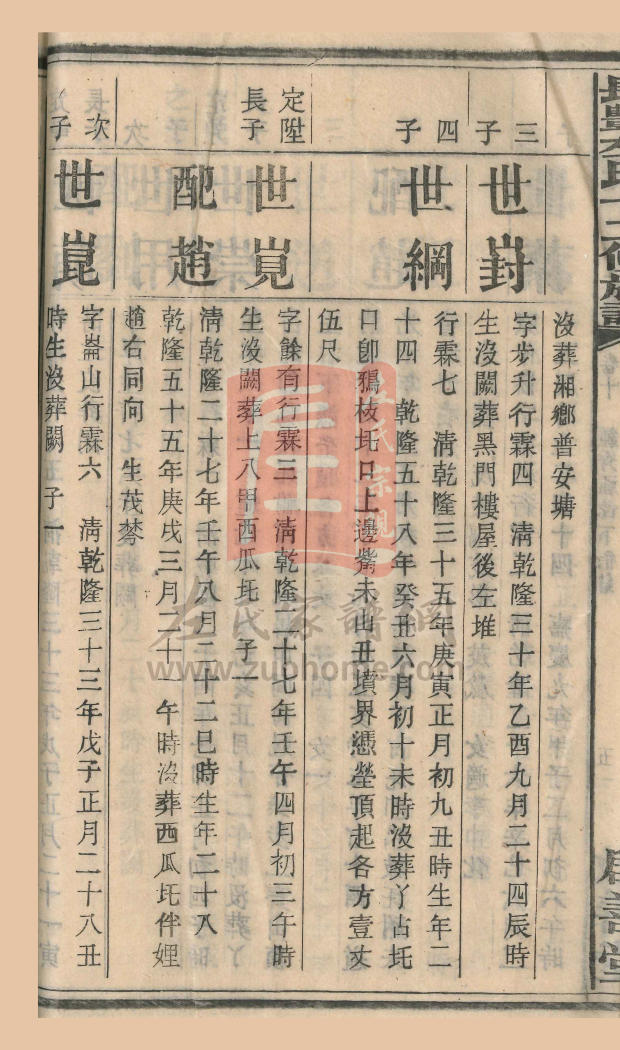 沒葬湘鄉普安塘
三子
世尌
字步升行霖四 淸乾隆三十年乙酉九月二十四辰時
生沒闕葬黑門樓屋後左堆
四子
世綱
行霖七 淸乾隆三十五年庚寅正月初九丑時生年二
十四 乾隆五十八年癸丑六月初十未時沒葬丫占坵
口卽鵶枝坵口上邊觜未山丑墳界憑塋頂起各方壹丈
伍尺
定陞長子
世覓
字餘有行霖三 淸乾隆二十七年壬午四月初三午時
生沒闕葬上八甲西瓜坵 子一
配趙
淸乾隆二十七年壬午八月二十二巳時生年二十八
乾隆五十五年庚戌三月二十一午時沒葬西瓜坵伴娌
趙右同向 生茂棽
次子
世崑
字崙山行霖六 淸乾隆三十三年戊子正月二十八丑
時生沒葬闕 子一
左氏宗親
左氏家譜網
www.zuohome.com